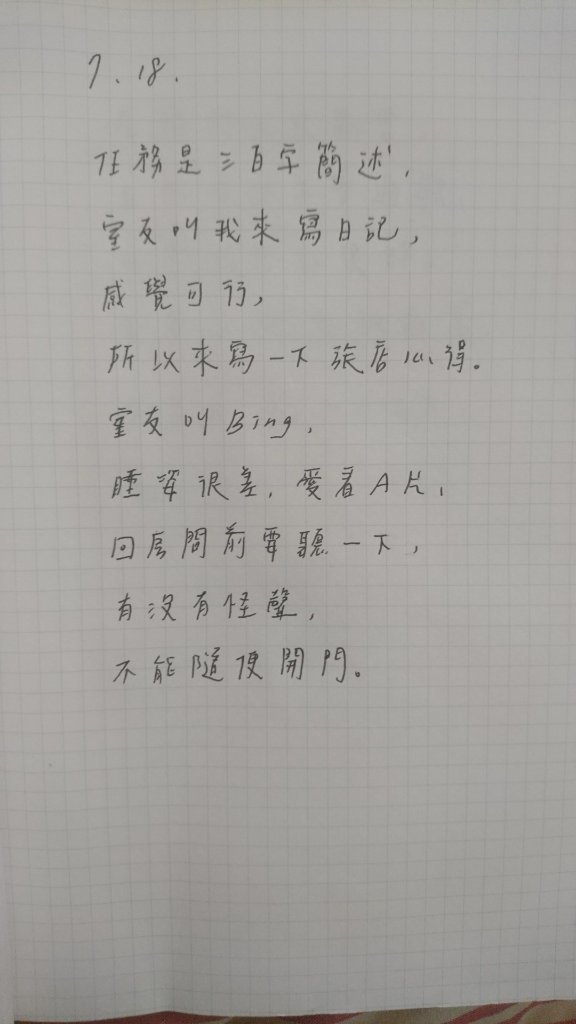 7.18.
任務是三百字簡述,
室友叫我來寫日記,
感覺可行,
所以來寫一下張店心得。
室友叫Bing,
睡姿很差,愛看A片,
回房間前要聽一下,
有沒有怪聲,
不能隨便開門。